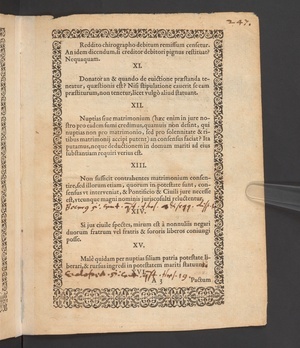 247.
Reddito chirographo debitum remissum censetur.
An idem dicendum, si creditor debitori pignus restituat?
Nequaquam.
XI.
Donator an & quando de euictione præstanda te-
neatur, quæstionis est? Nisi stipulatione cauerit se eam
præstiturum, non tenetur, licet vulgò aliud statuant.
XII.
Nuptias siue matrimonium (hæc enim in iure nostro
pro eadem sumi credimus, quamuis non desint, qui
nuptias non pro matrimonio, sed pro solemnitate & ri-
tibus matrimonij accipi putent) an consensus faciat? Ita
putamus, neque deductionem in domum mariti ad eius
substantiam requiri verius est.
XIII.
Non sufficit contrahentes matrimonium consen-
tire, sed illorum etiam, quorum in potestate sunt, con-
sensus vt interveniat, & Pontificio & Ciuili jure necesse
est, vtcunque magni nominis jurisconsulti reluctentur.
XIV.
Si jus ciuile spectes, mirum est à nonnullis negari
duorum fratrum vel fratris & sororis liberos coniungi
posse.
XV.
Malè quidam per nuptias filiam patria potestate li-
berari, & rursus ingredi in potestatem mariti statuunt.
A 3
Pactum